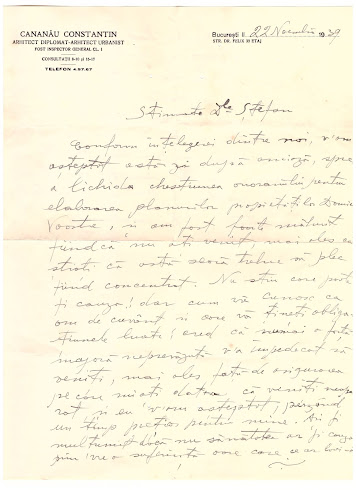 CANANĂU CONSTANTIN
ARHITECT DIPLOMAT-ARHITECT URBANIST
FOST INSPECTOR GENERAL CL. I
CONSULTAȚII 8-10 și 15-17
TELEFON 4.97.67
București II. 22 Noembrie 1939
STR. DR. FELIX 35 ETAJ
Stimate Dle Ștefan
Conform înțelegerei dintre noi, v'am
așteptat astăzi după amiază, spre
a lichida chestiunea onorariului pentru
elaborarea planurilor proprietăților Domniei
Voastre, și am fost foarte mâhnit
fiindcă nu ați venit, mai ales că
știați că astă seară trebue să plec
fiind concentrat. Nu știu care poate
fi cauza! dar cum vă cunosc ca
om de cuvânt și care vă țineți obliga-
țiunele luate! cred că numai o forță
majoră neprevăzută v'a împedicat să
veniți, mai ales față de asigurarea
pe care mi-ați dat-o că veniți
și eu v'am așteptat, pierzând
un timp prețios pentru mine. Aș fi
mulțumit dacă nu sănătatea ar fi cauza